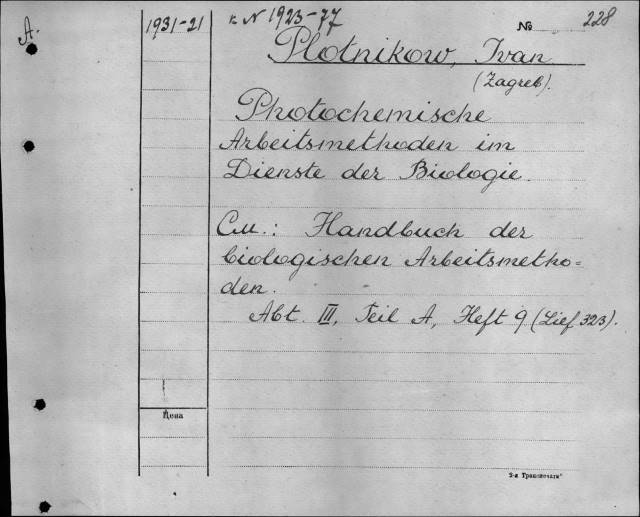 A.
1931-21
к N 1923-77
№ 228
Plotnikow, Ivan
(Zagreb).
Photochemische
Arbeitsmethoden im
Dienste der Biologie.
См.: Handbuch der
biologischen Arbeitsmetho=
den.
Abt. III, Teil A, Heft 9 (Lief 323).
Цена
2-я Транспечати"